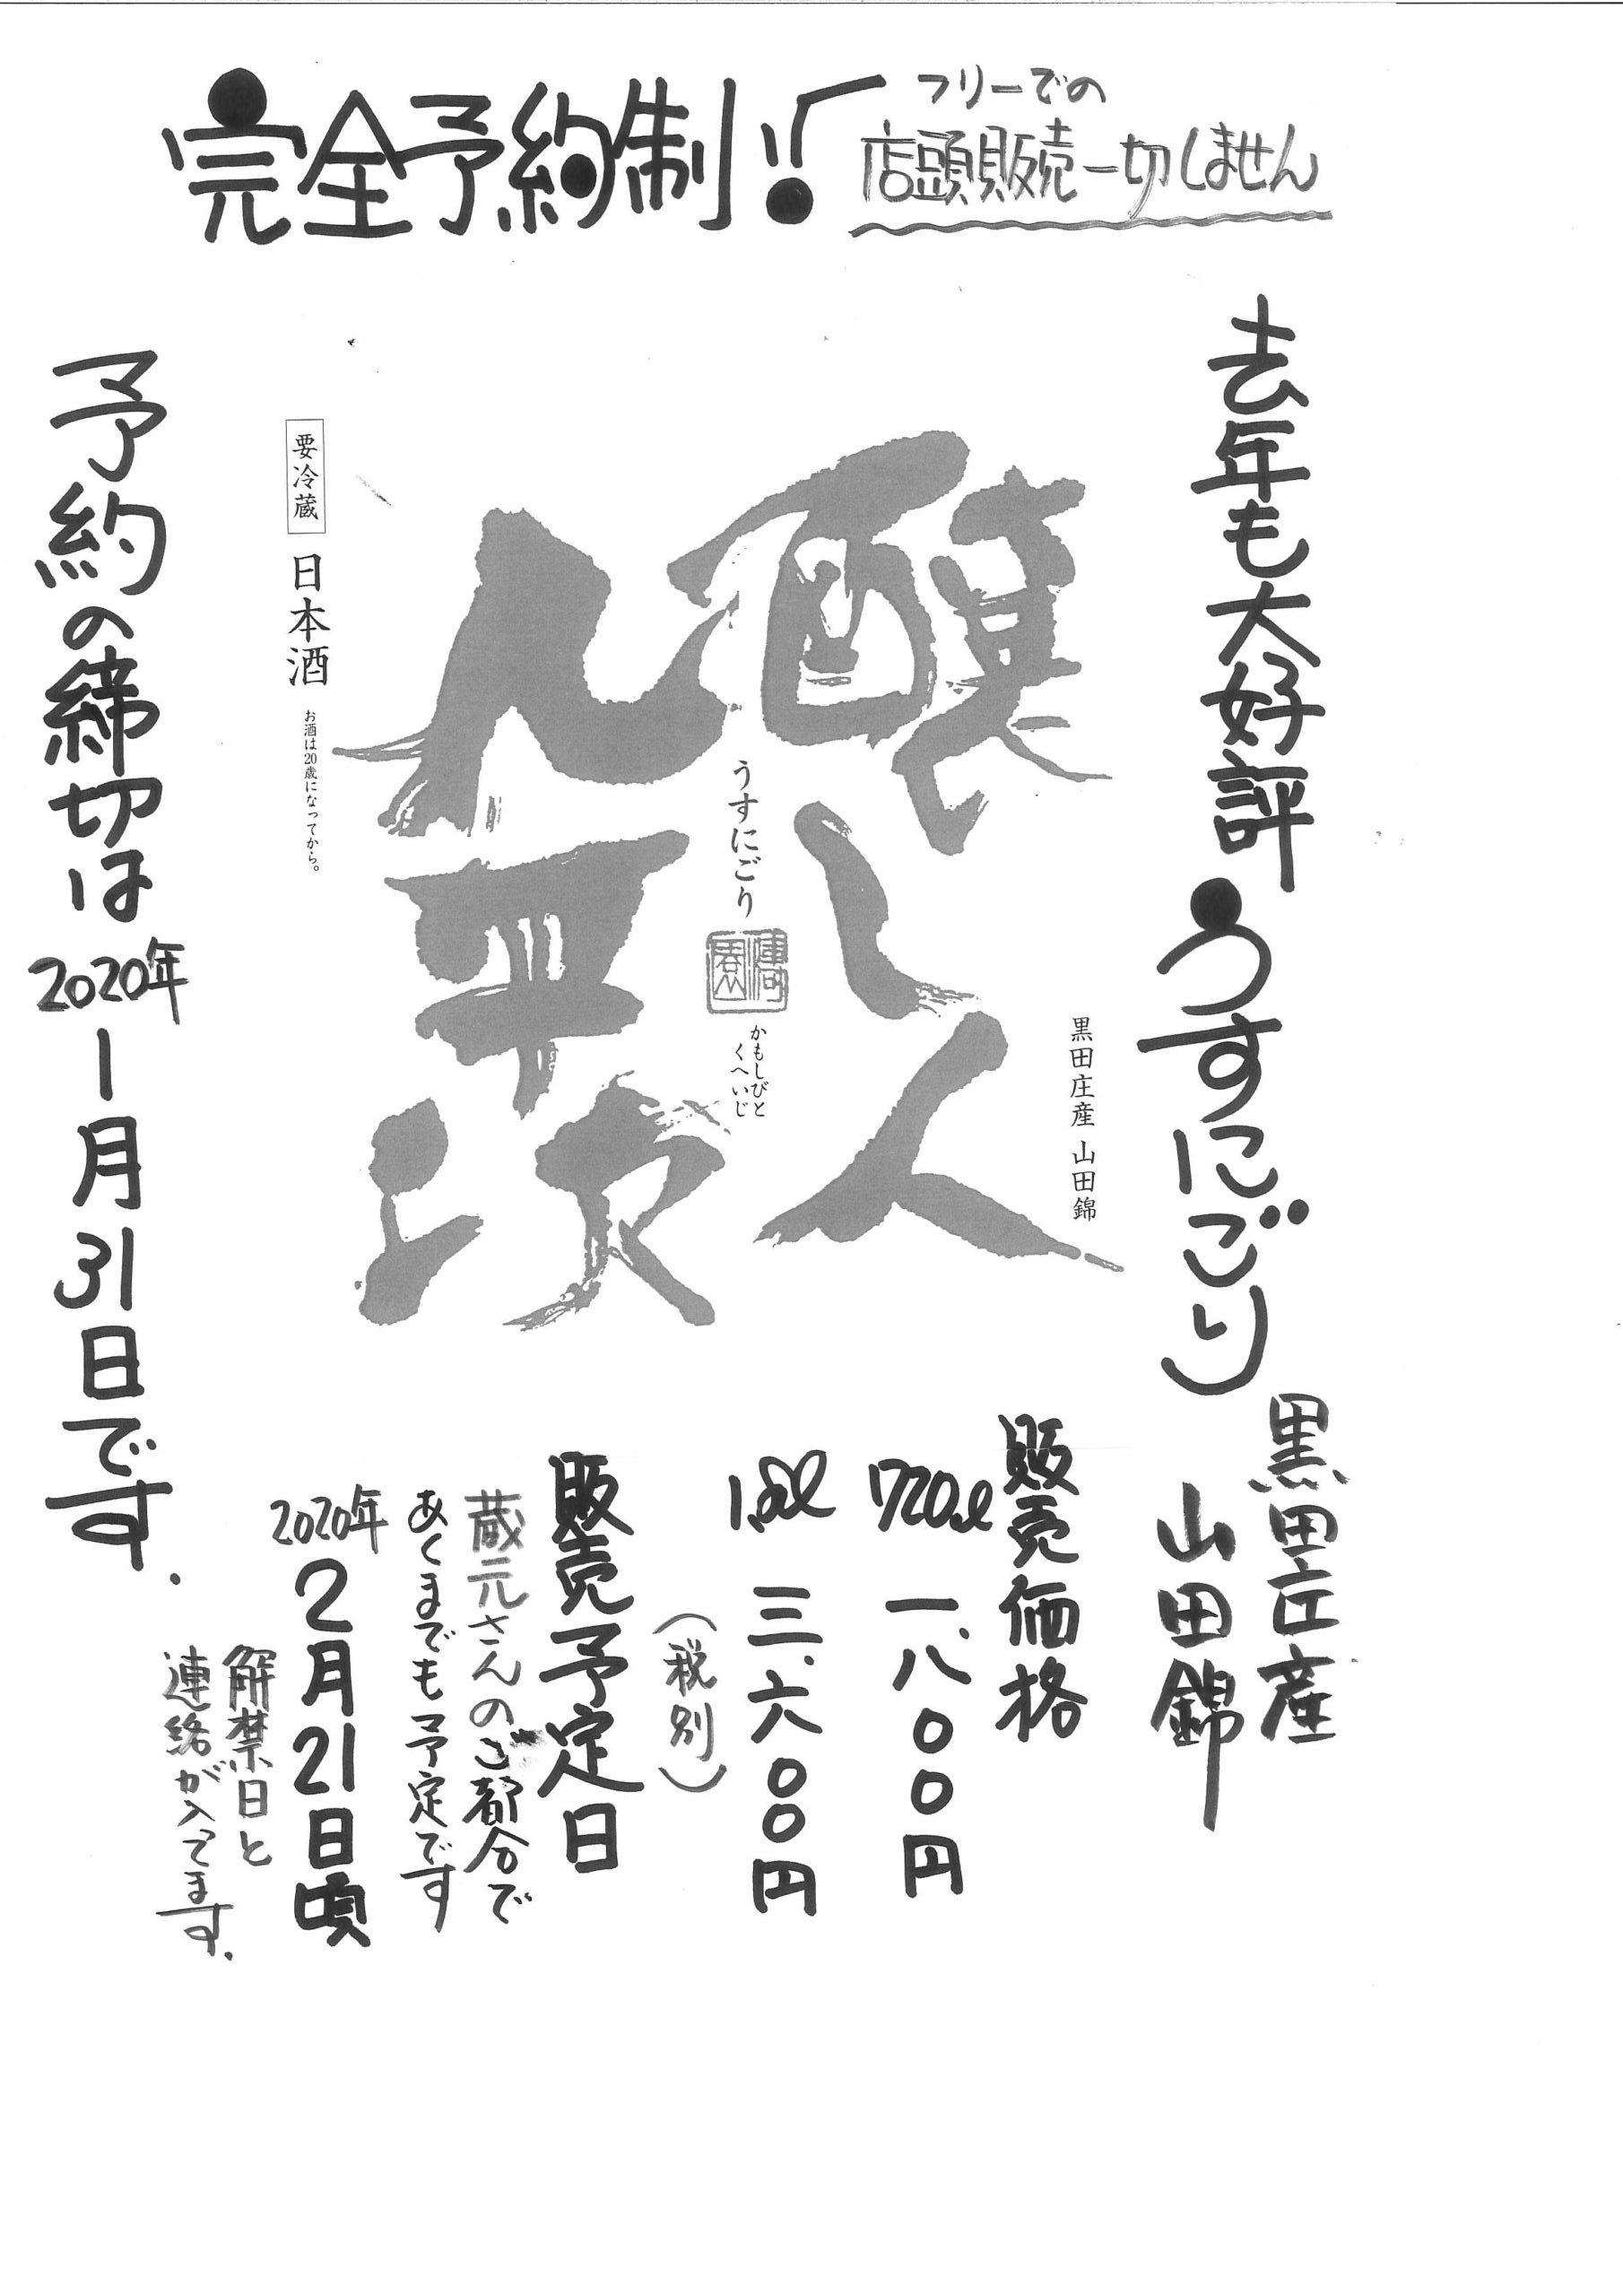 完全予約制!!
フリーでの
店頭販売一切しません
去年も大好評うすにごり
黒田庄産
山田錦
黒田庄産 山田錦
醸し人
九平次
うすにごり
かもしびと
くへいじ
要冷蔵 日本酒 お酒は20歳になってから。
販売価格
720ml 一、八〇〇円
1.8l 三、六〇〇円
(税別)
販売予定日
蔵元さんのご都合で
あくまでも予定です
2020年2月21日頃
解禁日と
連絡が入ってます.
予約の締切は2020年1月31日です.